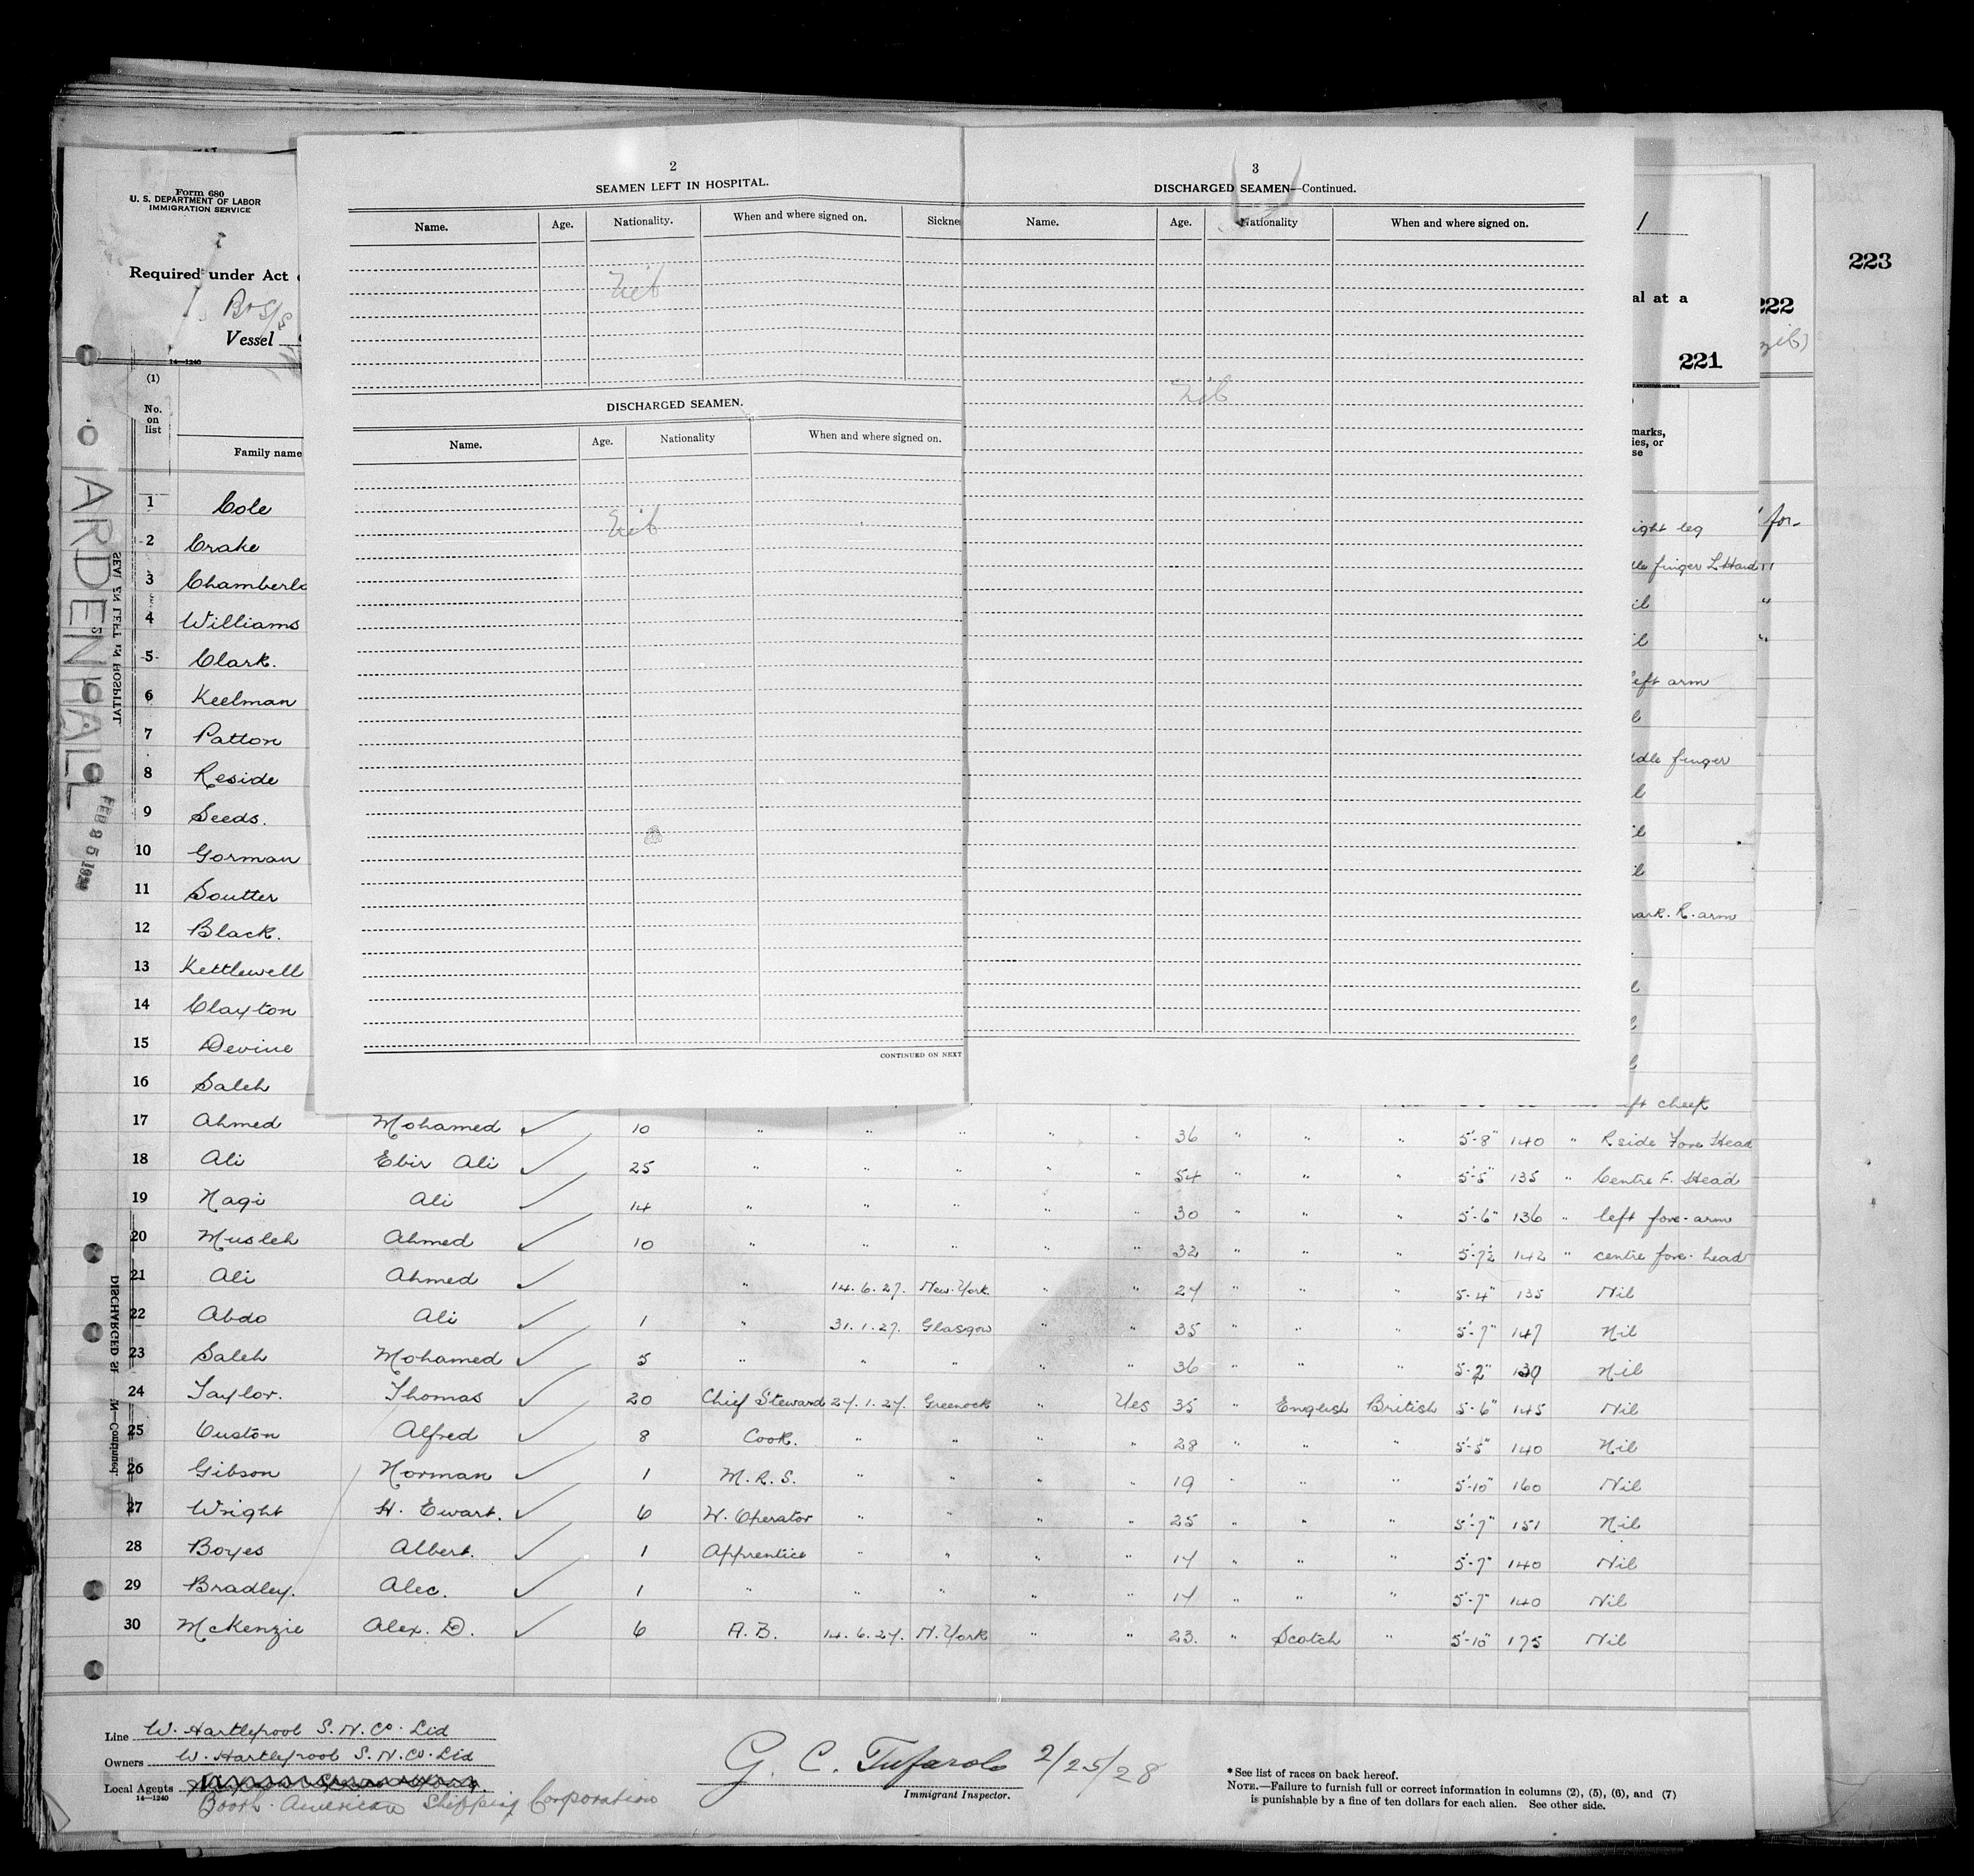 Form 680
U. S. DEPARTMENT OF LABOR
IMMIGRATION SERVICE
Required under Act
Br S/S
Vessel
14—1240
(1)
No.
on
list
Family name
2
SEAMEN LEFT IN HOSPITAL.
Name. Age. Nationality. When and where signed on. Sickne
Nil
DISCHARGED SEAMEN.
Name. Age. Nationality When and where signed on.
Nil
CONTINUED ON NEXT
3
DISCHARGED SEAMEN—Continued.
Name. Age. Nationality When and where signed on.
Nil
1
al at a
221
222
223
marks,
ies, or
se
ARDENHALL
FEB 25 1928
SEAMEN LEFT IN HOSPITAL.
DISCHARGED SE N—Continued.
1 Cole ight leg for-
2 Crake dle finger L Hand "
3 Chamberla il "
4 Williams il "
5 Clark. left arm
6 Keelman l
7 Patton ddle finger
8 Reside l
9 Seeds. il
10 Gorman il
11 Soutter mark. R. arm
12 Black.
13 Kettlewell l
14 Clayton l
15 Devine l
16 Saleh ft cheek
17 Ahmed Mohamed ✓ 10 " " " " " 36 " " " 5'-8" 140 " R side Fore Head
18 Ali Ebir Ali ✓ 25 " " " " " 54 " " " 5'-5" 135 " Centre F. Head
19 Nagi Ali ✓ 14 " " " " " 30 " " " 5'-6" 136 " left fore-arm
20 Musleh Ahmed ✓ 10 " " " " " 32 " " " 5'-7½ 142 " centre fore-head
21 Ali Ahmed ✓ " 14.6.27. New York " " 27 " " " 5-4" 135 Nil
22 Abdo Ali ✓ 1 " 31.1.27. Glasgow " " 35 " " " 5'-7" 147 Nil
23 Saleh Mohamed ✓ 5 " " " " " 36 " " " 5-2" 139 Nil
24 Taylor. Thomas ✓ 20 Chief Steward 27.1.27. Greenock " Yes 35 " English British 5-6" 145 Nil
25 Ouston Alfred ✓ 8 Cook. " " " " 28 " " " 5'-5" 140 Nil
26 Gibson Norman ✓ 1 M.R.S. " " " " 19 " " " 5'-10" 160 Nil
27 Wright H. Ewart. ✓ 6 W. Operator " " " " 25 " " " 5'-7" 151 Nil
28 Boyes Albert. ✓ 1 Apprentice " " " " 17 " " " 5'-7" 140 Nil
29 Bradley. Alec. ✓ 1 " " " " " 17 " " " 5'-7" 140 Nil
30 McKenzie Alex. D. ✓ 6 A.B. 14.6.27. N. York " " 23. " Scotch " 5'-10" 175 Nil
Line W. Hartlepool S. N. Co. Ltd
Owners W. Hartlepool S. N. Co. Ltd
Local Agents
14—1240
Booth American Shipping Corporation
G. C. Tufarolo 2/25/28
Immigrant Inspector.
*See list of races on back hereof.
NOTE.—Failure to furnish full or correct information in columns (2), (5), (6), and (7)
is punishable by a fine of ten dollars for each alien. See other side.